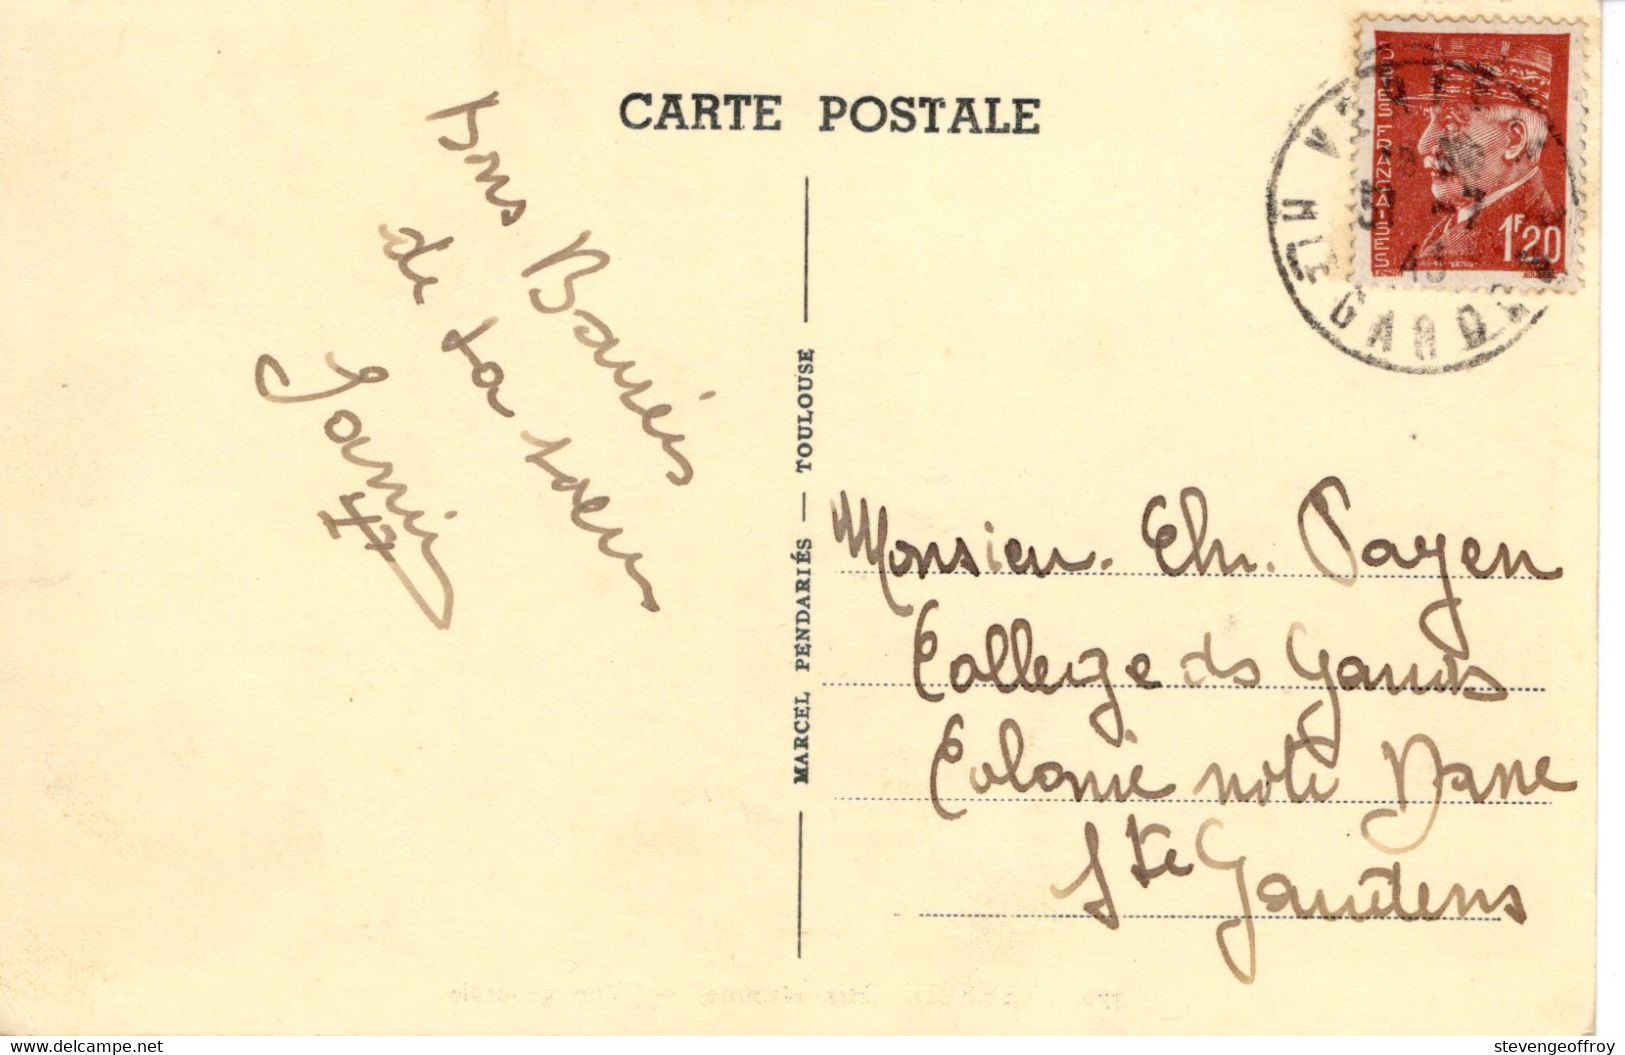 CARTE POSTALE
Bons Baisers
de ta sœur
Janin
MARCEL PENDARIÉS — TOULOUSE
POSTES FRANÇAISES
1F20
31 -7
43
HTE GARONNE
Monsieur. Ch. Payen
College de Garcons
Colonie notre Dame
Ste Gaudens
delcampe.net
stevengeoffroy